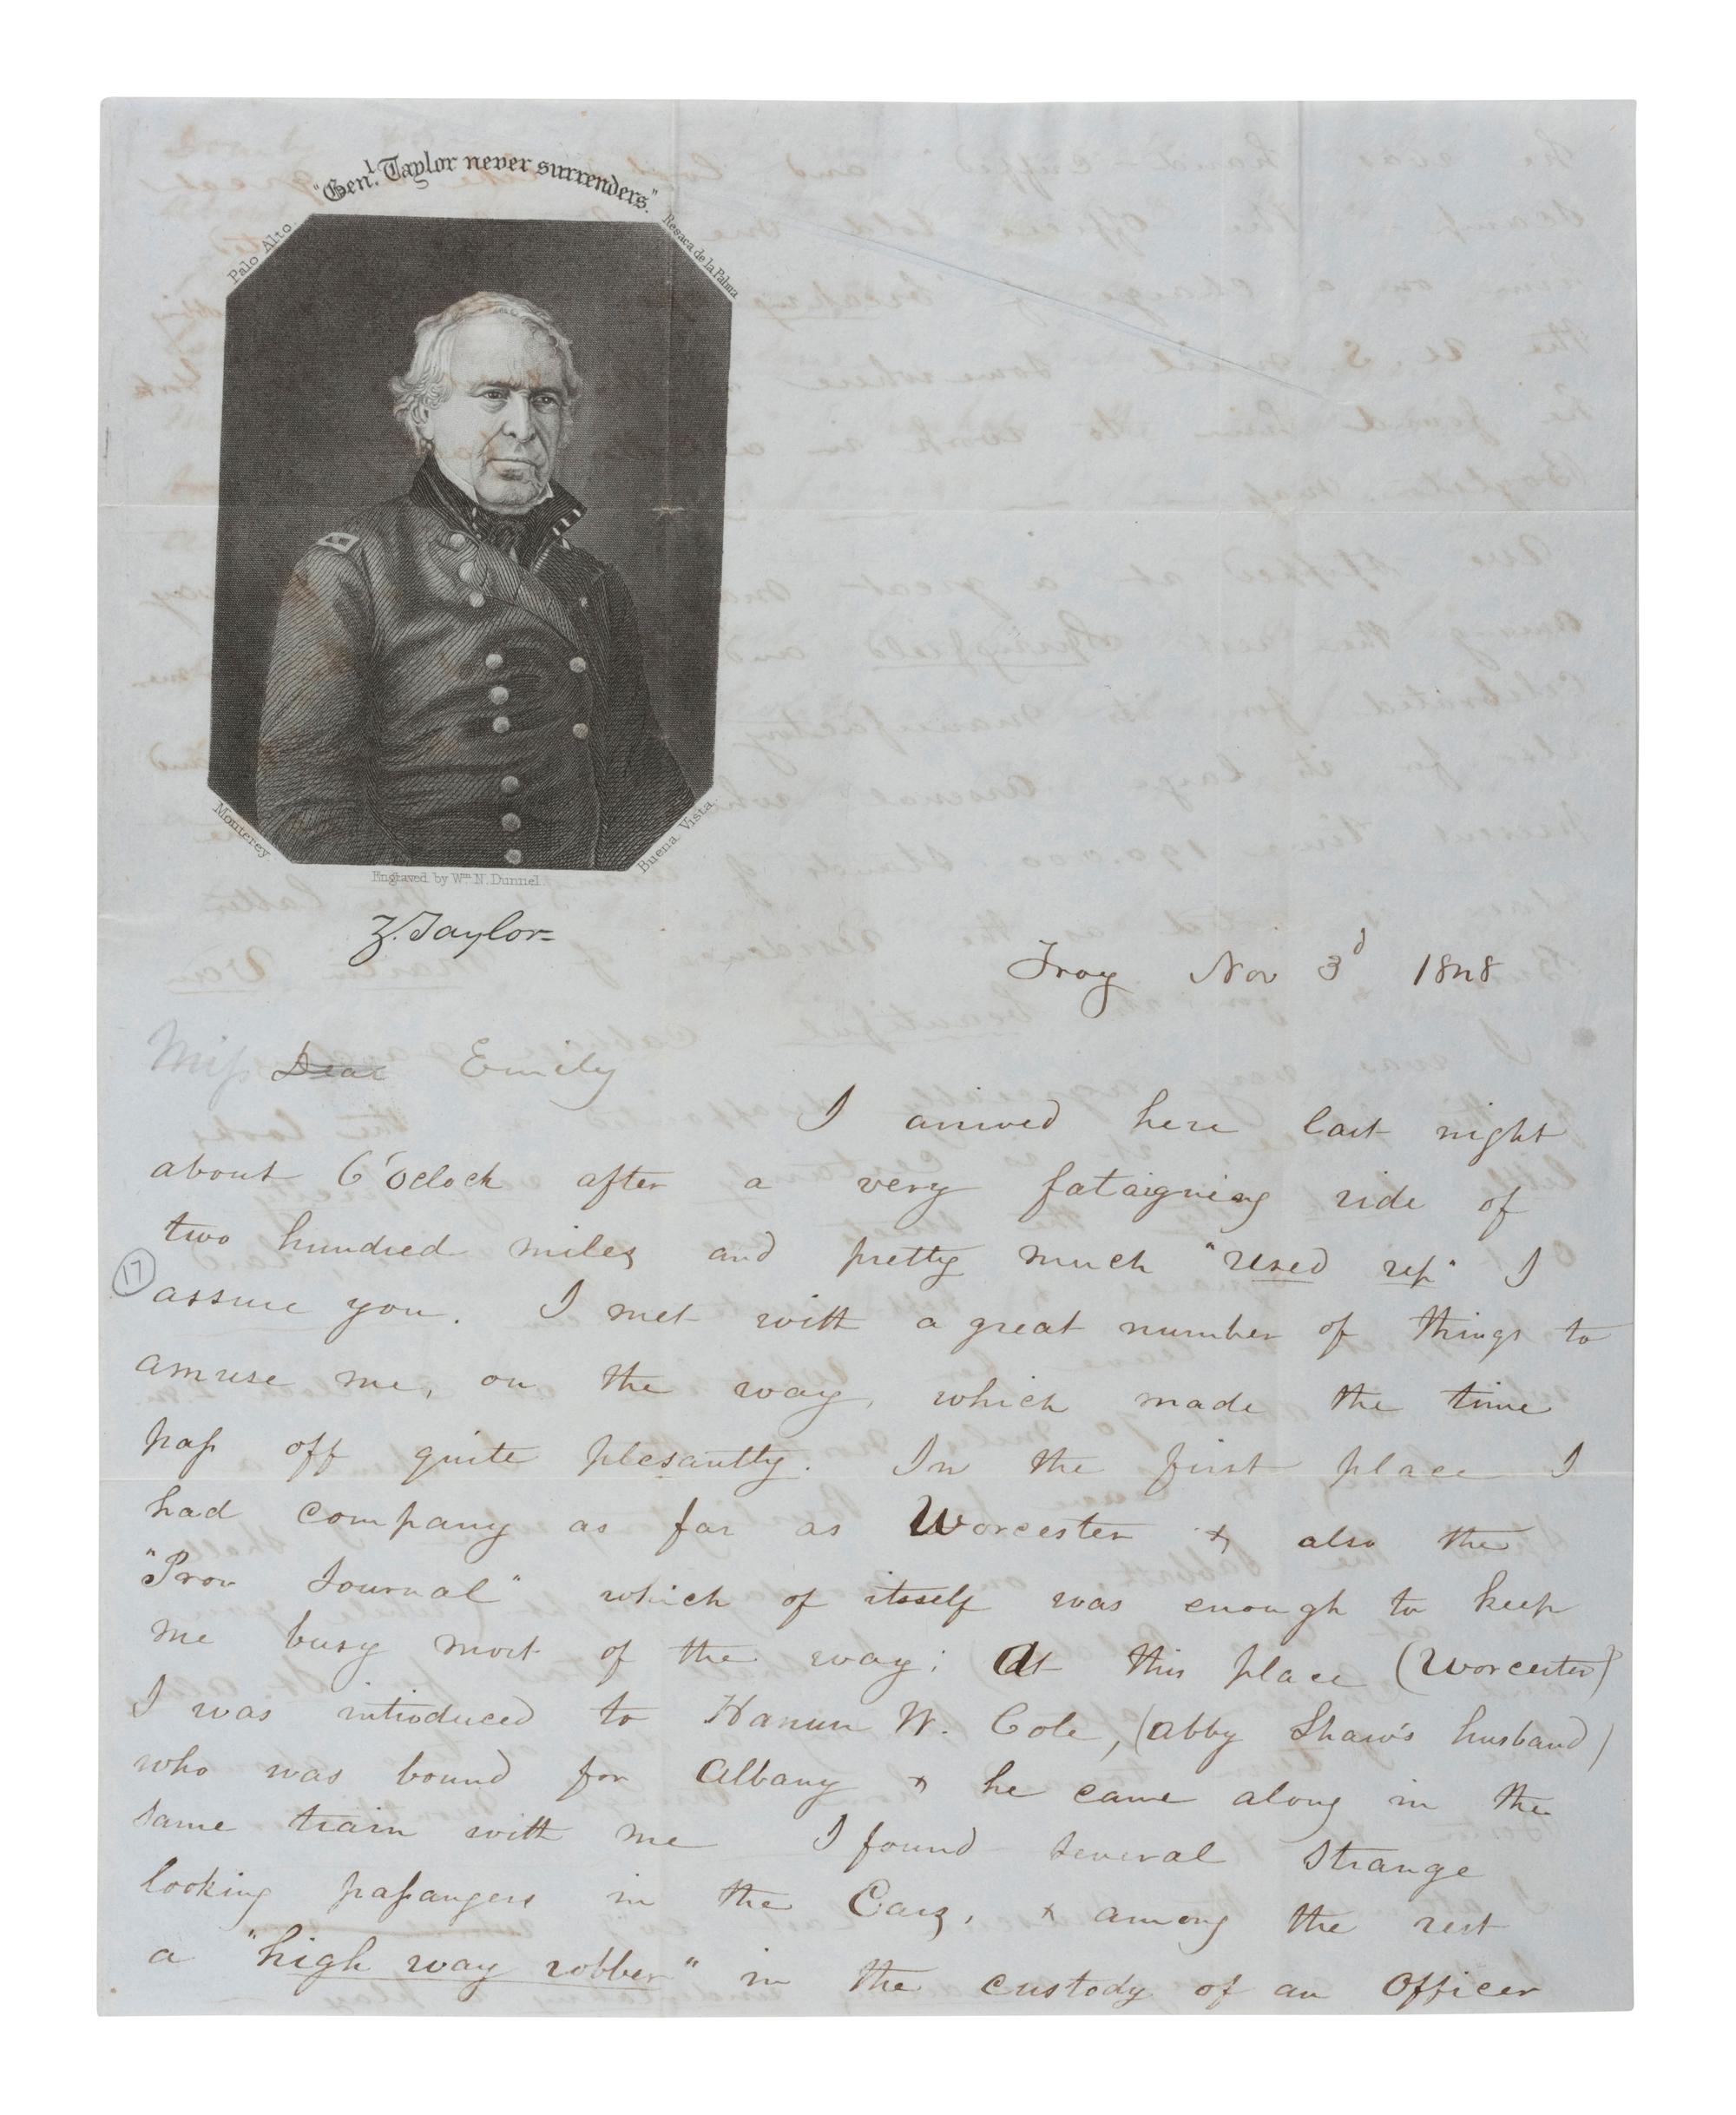 "Genl. Taylor never surrenders."
Palo Alto.
Resaca de la Palma
Monterey
Buena Vista.
Engraved by Wm. N. Dunnel
Z. Taylor
Troy Nov 3d 1848
Miss Dear Emily
I arrived here last night
about 6 'Oclock after a very fataigning ride of
two hundred miles and pretty much "used up" I
17
assure you. I met with a great number of things to
amuse me, on the way, which made the time
pass off quite plesantly. In the first place I
had company as far as Worcester & also the
"Prov Journal" which of itself was enough to keep
me busy most of the way; At this place (Worcester)
I was introduced to W. Cole, (Abby Shaw's husband)
who was bound for Albany & he came along in the
same train with me I found several strange
looking passangers in the Cars, & among the rest
a "high way robber" in the custody of an Officer